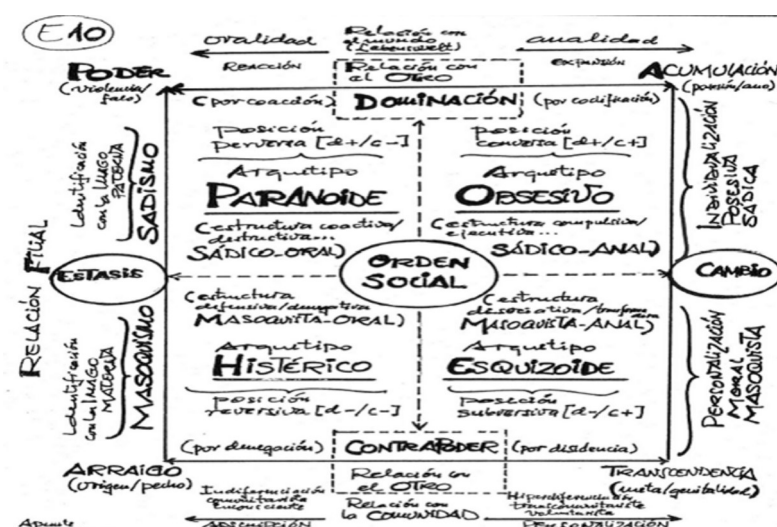 E10
oralidad
Relación con
el mundo
(Lebenswelt)
analidad
REACCIÓN
EXPANSIÓN
PODER
(violencia/
falo)
Relación con
el OTRO
ACUMULACIÓN
(posesión/ano)
(por coacción)
DOMINACIÓN
(por codificación)
posición
perversa [d+/c-]
posición
conversa [d+/c+]
Arquetipo
PARANOIDE
Arquetipo
OBSESIVO
(estructura coactiva/
destructiva...
SÁDICO-ORAL)
(estructura compulsiva/
ejecutiva...
SÁDICO-ANAL)
RELACIÓN FILIAL
Identificación
con la IMAGO
PATERNA
SADISMO
INDIVIDUALIZACIÓN
POSESIVA
SÁDICA
ESTASIS
ORDEN
SOCIAL
CAMBIO
(estructura
defensiva/denegativa
MASOQUISTA-ORAL)
(estructura
MASOQUISTA-ANAL)
Arquetipo
HISTÉRICO
Arquetipo
ESQUIZOIDE
posición
reversiva [d-/c-]
posición
subversiva [d-/c+]
Identificación
con la IMAGO
MATERNA
MASOQUISMO
PERSONALIZACIÓN
MORAL
MASOQUISTA
(por denegación)
CONTRAPODER
(por disidencia)
ARRAIGO
(origen/pecho)
Relación con
el OTRO
TRANSCENDENCIA
(meta/genitalidad)
Indiferenciación
comunitarista
Relación
con la COMUNIDAD
Hiperdiferenciación
transcomunitarista
voluntarista
Apunte
ADSCRIPCIÓN
PERSONALIZACIÓN